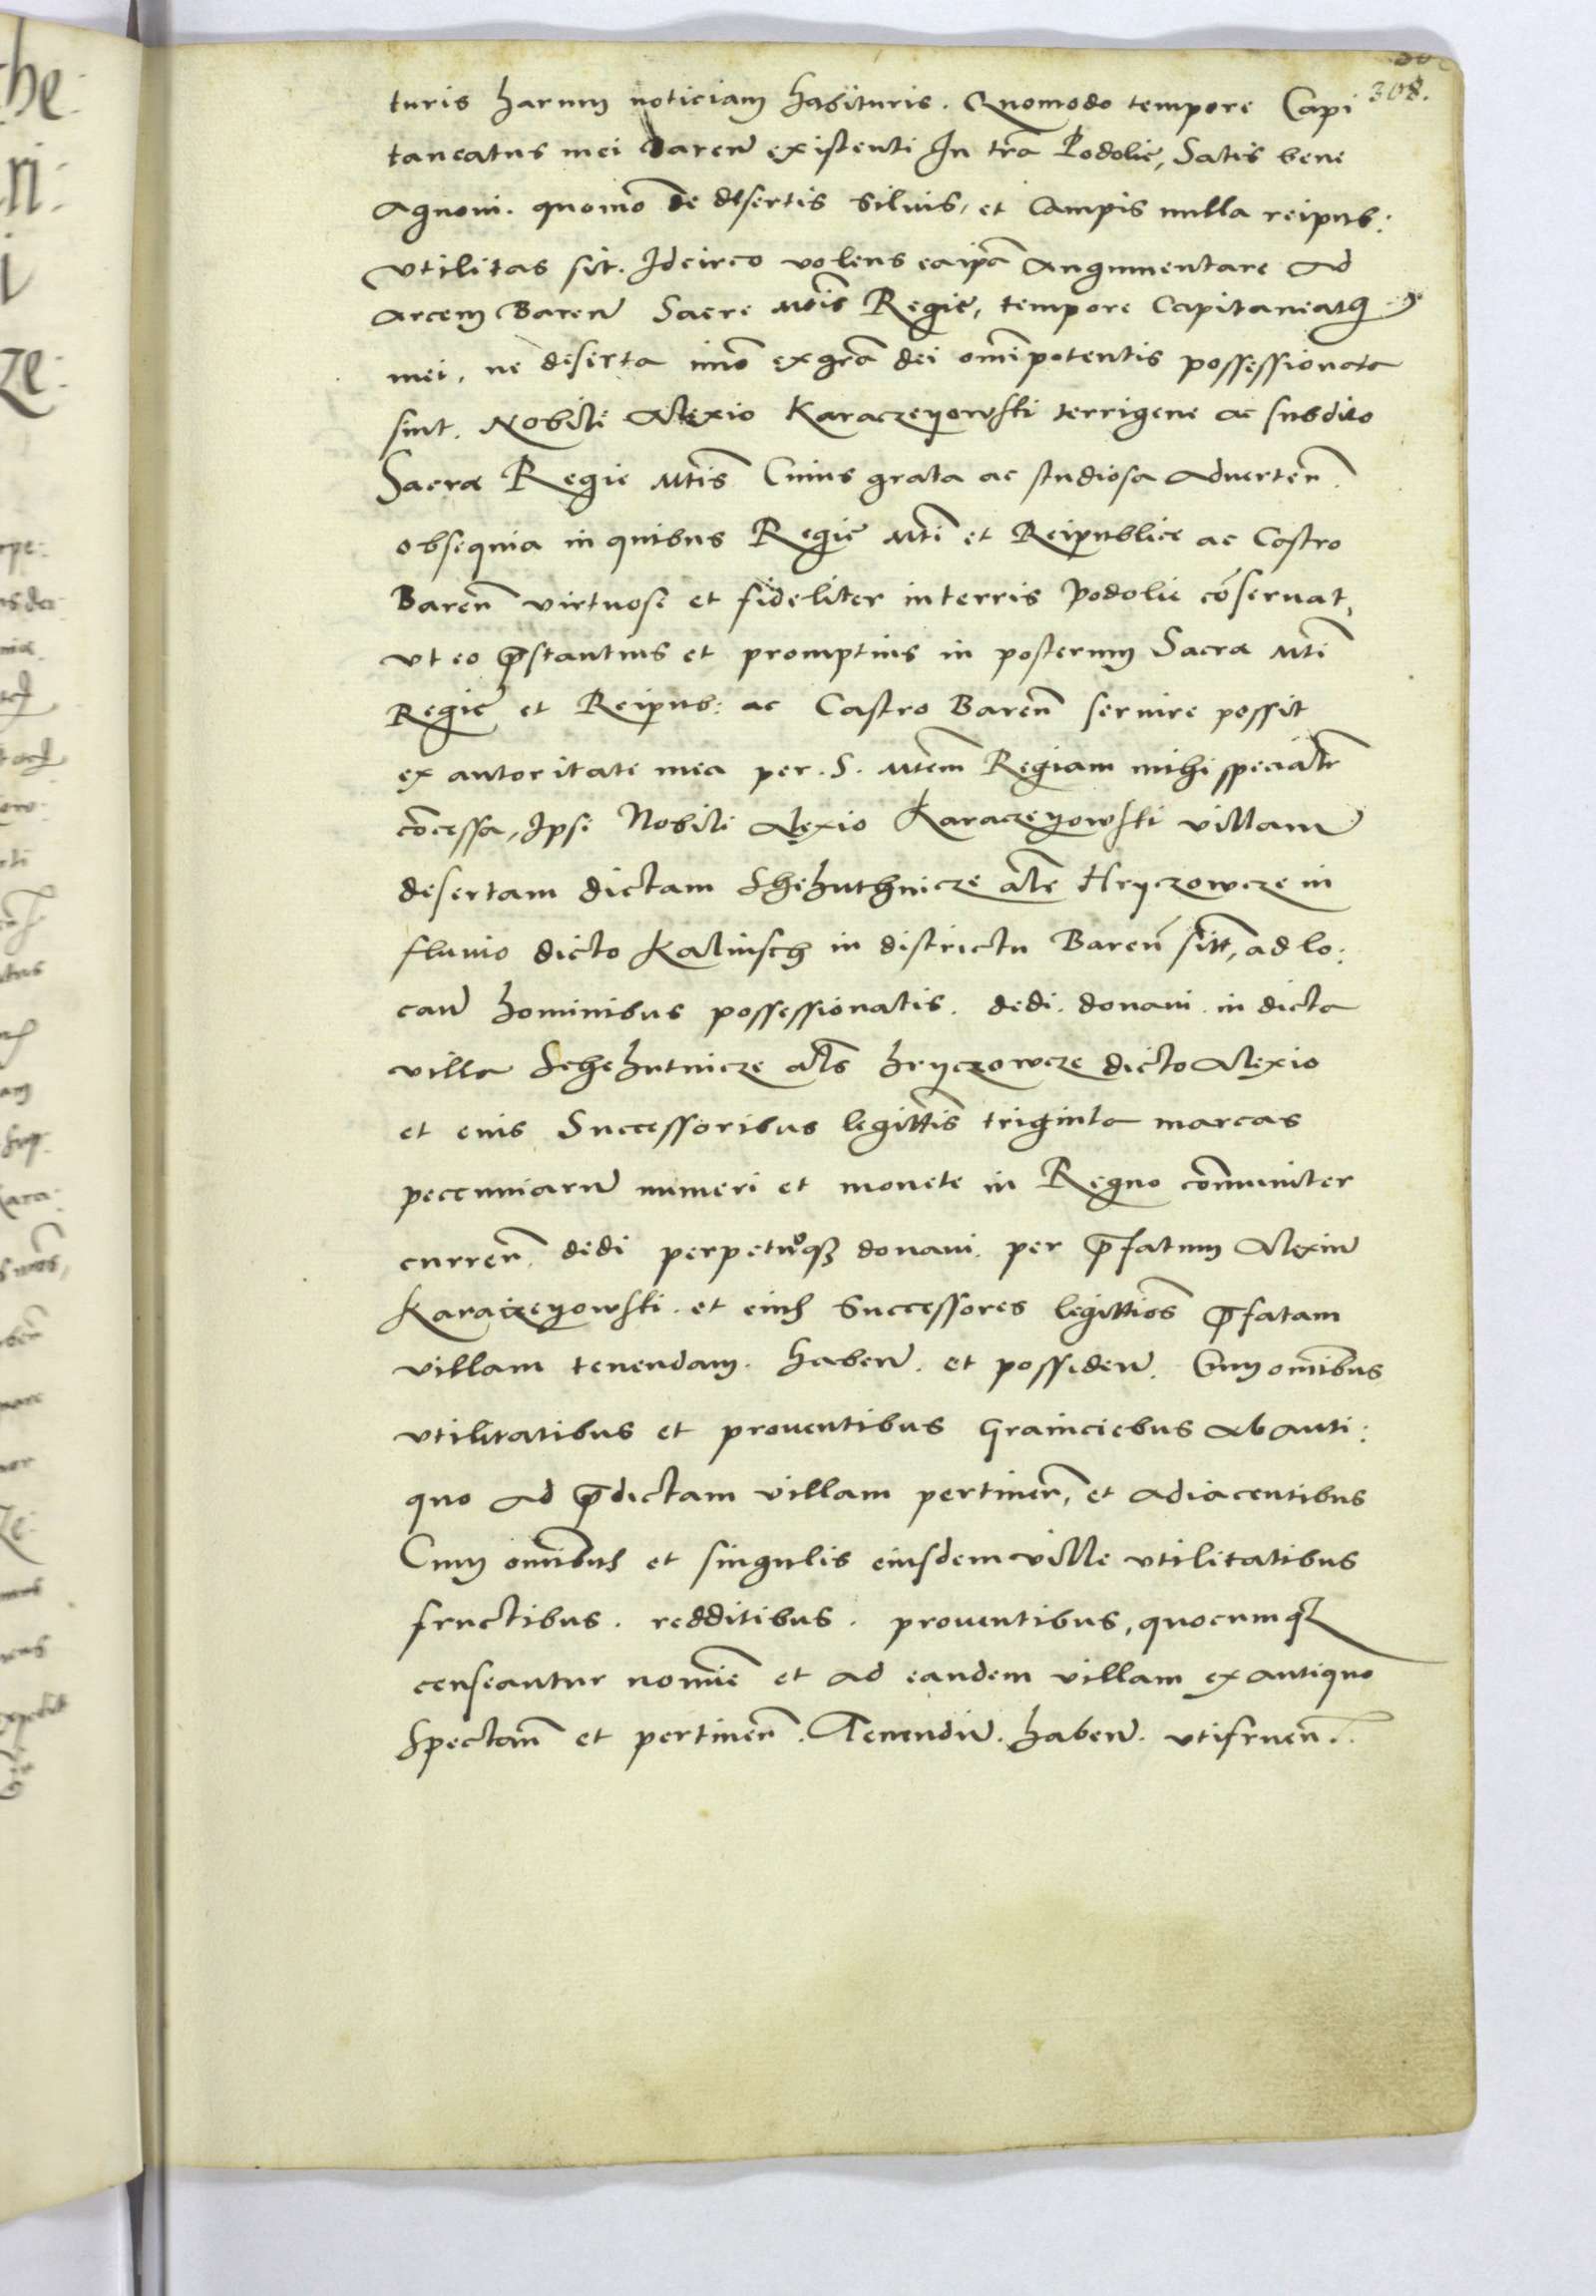 308.
turis harum noticiam habituris. Quomodo tempore Capi
taneatus mei Baren existenti In tra Podolie, Satis bene
Agnoui. quomo de desertis siluis, et Campis nulla reipub:
vtilitas sit. Idcirco volens eaipa Angumentare Ad
Arcem Baren Sacre Mtis Regie, tempore Capitaneatus
mei, ne deserta imo ex gra dei omipotentis possessionata
sint. Nobili Alexio Karaczeyowski terrigene ac subdito
Sacrae Regie Mtis Cuius grata ac studiosa Aduerten.
obsequia in quibus Regie Mti et Reipublice ac Castro
Baren virtuose et fideliter in terris Podolie coseruat,
vt eo prstantius et promptius in posterum Sacrae Mti
Regie et Reipub: ac Castro Baren seruire possit
ex autoritate mea per. S. Mtem Regiam mihi specialr
cocessa, Ipsi Nobili Alexio Karaczeyowski villam
desertam dictam Shehuthnicze als Hryczowcze in
fluuio dicto Kaluisch in districtu Baren sitt, ad lo:
can hominibus possessionatis. dedi. donaui. in dicta
villa Schehutnicze als hryczowcze dicto Alexio
et euis Successoribus legittis triginta marcas
peccuniaru numeri et monete in Regno comuniter
curren. dedi perpetuoqz donaui. per prfatum Alexiu
Karaczeyowski. et eius Successores legittios prfatam
villam tenendam. haben. et possiden. Cum omibus
vtilitatibus et prouentibus Grainciebus ab anti:
quo Ad prdictam villam pertinen, et adiacentibus
Cum omibus et singulis eiusdem ville vtilitatibus
fructibus. redditibus. prouentibus, quocumqz
censeantur nomie et ad eandem villam ex antiquo
spectan et pertinen. Tenendu. haben. vtifruen.